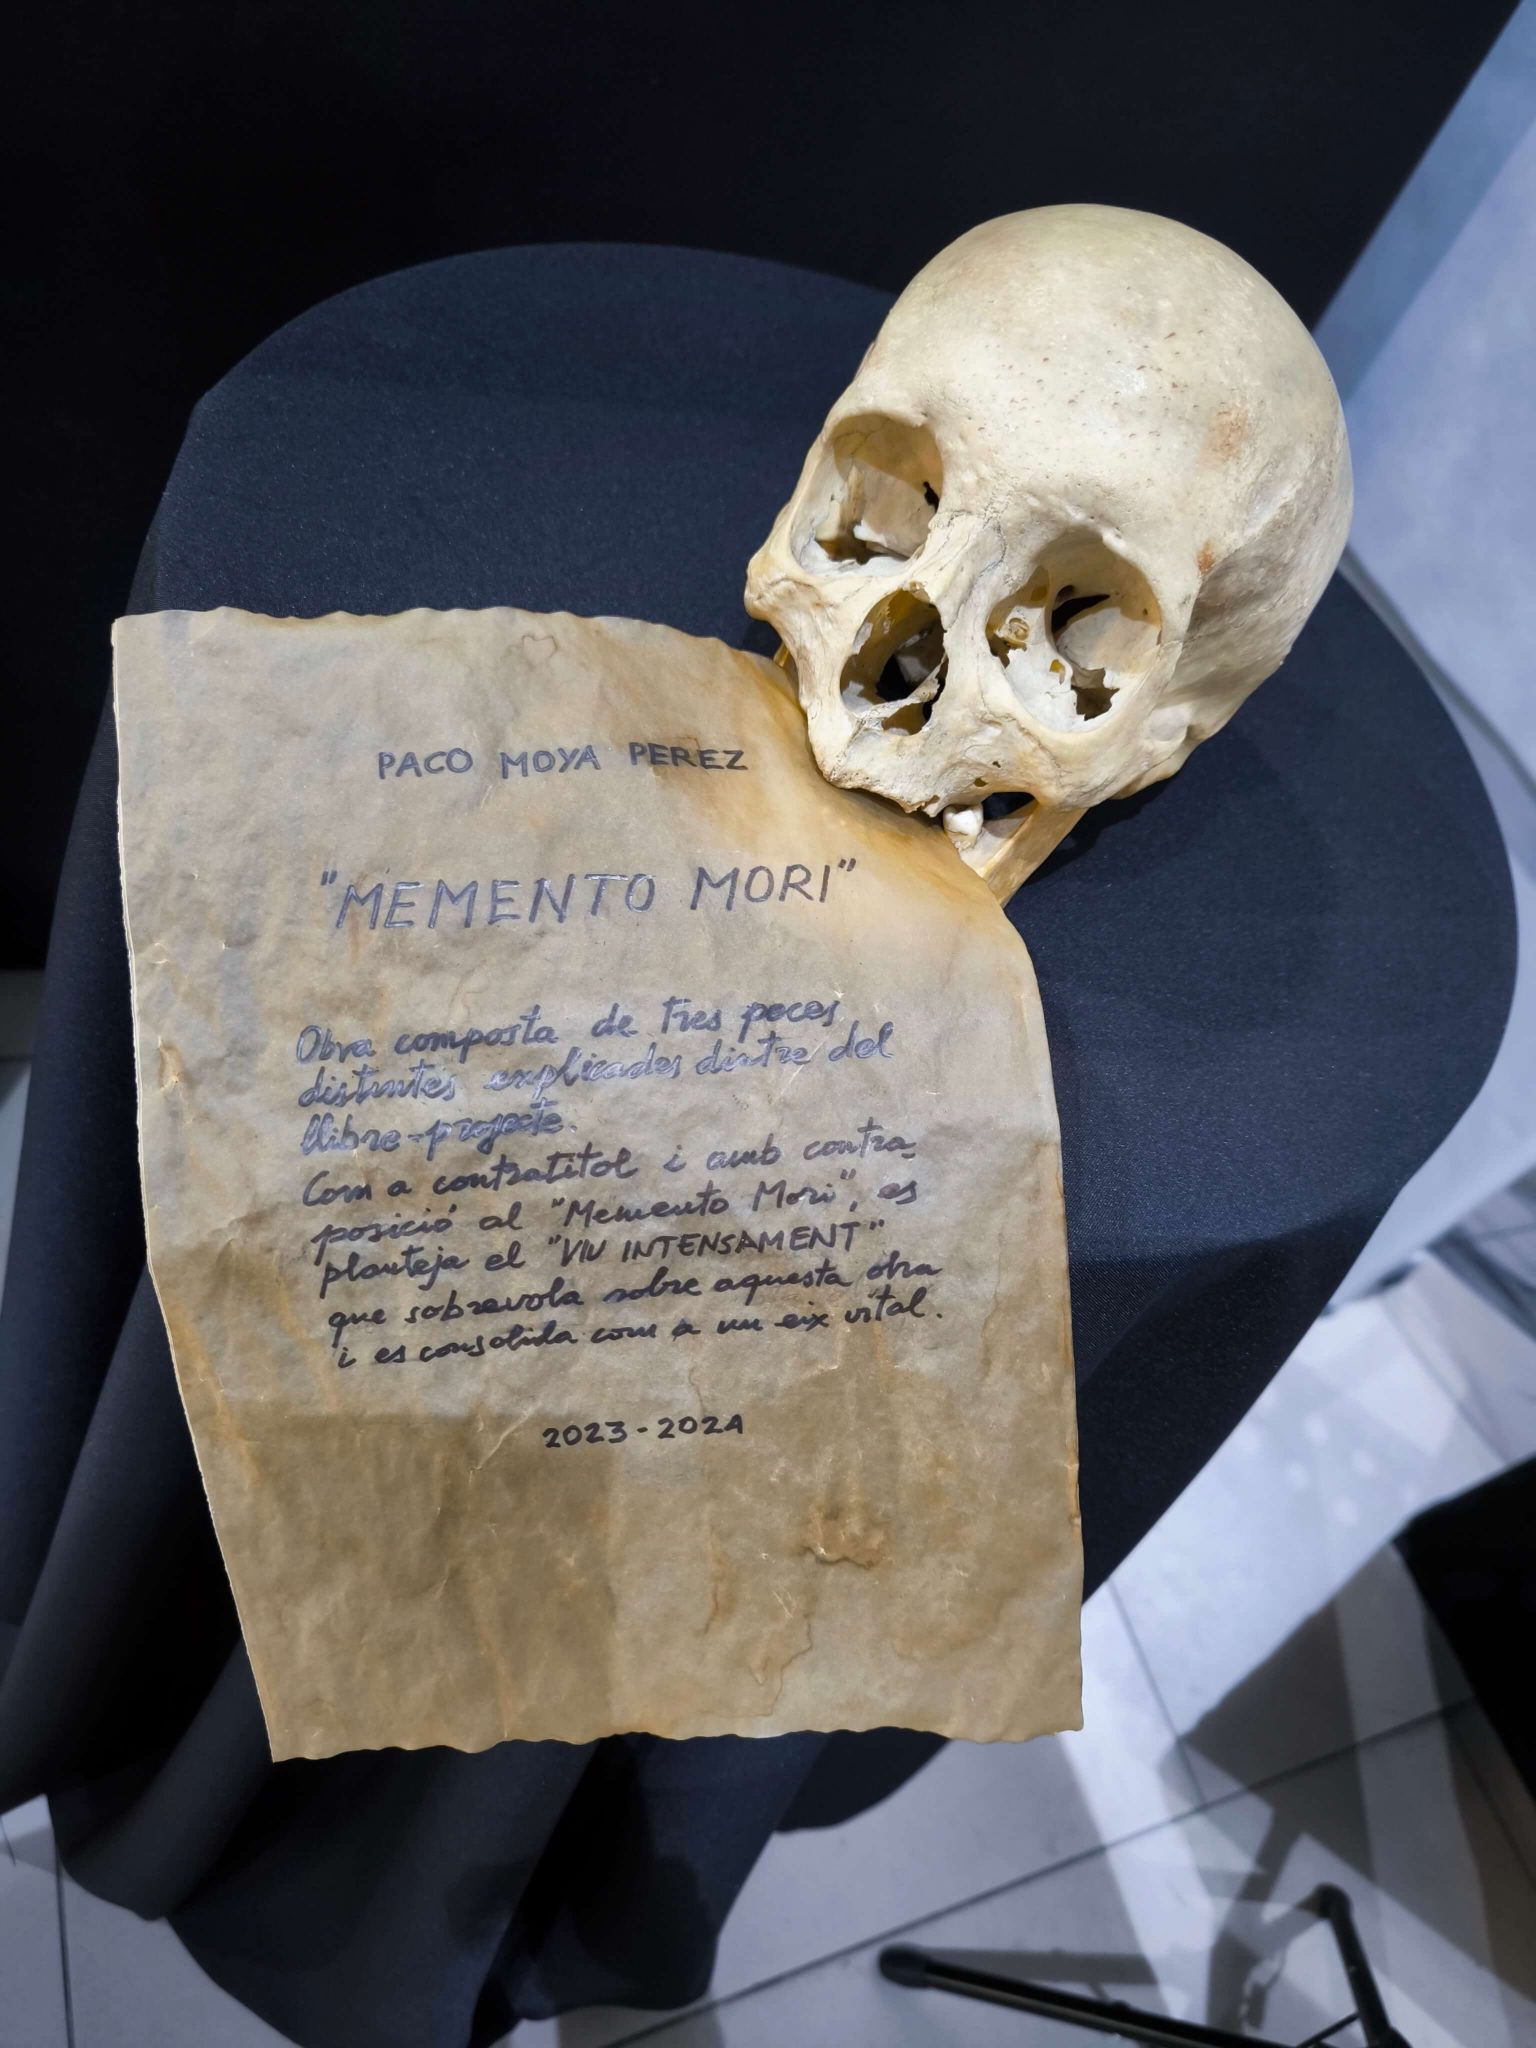 PACO MOYA PEREZ
"MEMENTO MORI"
Obra composta de tres peces
distintes explicades dintre del
llibre-projecte.
Com a contratitol i amb contra-
posició al "Memento Mori", es
planteja el "VIU INTENSAMENT"
que sobrevola sobre aquesta obra
i es consolida com a un eix vital.
2023-2024